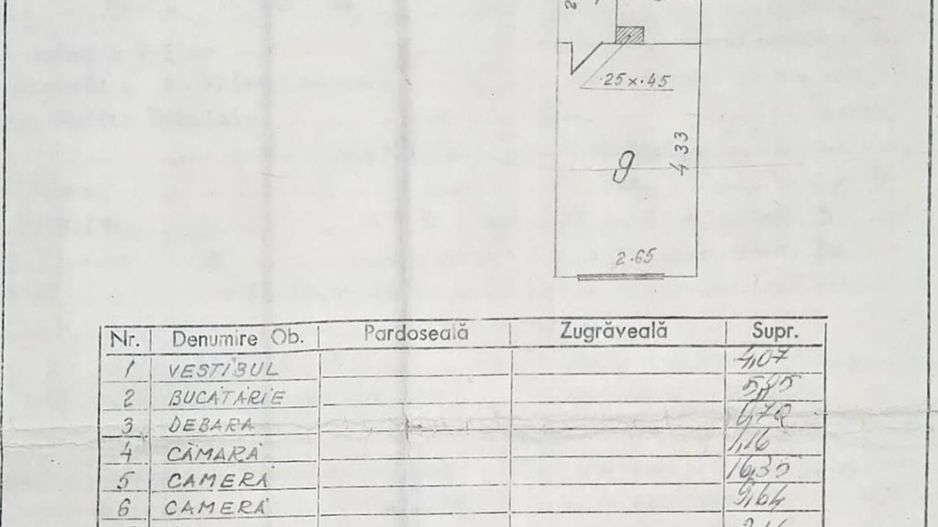 .25×.45
9
4.33
2.65
Nr. Denumire Ob. Pardoseală Zugrăveală Supr.
1 VESTIBUL 4,07
2 BUCATARIE
3 DEBARA
4 CĂMARĂ 1,16
5 CAMERĂ 16,35
6 CAMERĂ 9,64